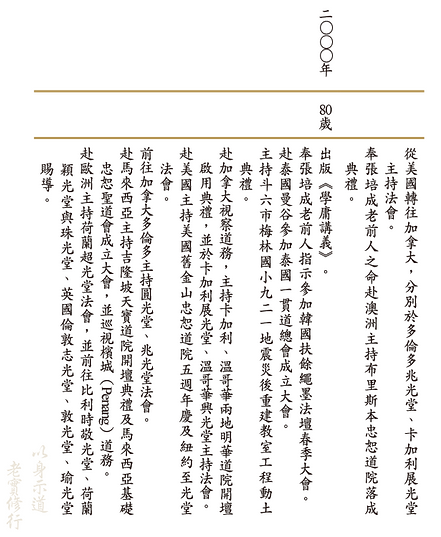 從美國轉往加拿大，分別於多倫多兆光堂、卡加利展光堂
主持法會。
奉張培成老前人之命赴澳洲主持布里斯本忠恕道院落成
典禮。
二〇〇〇年
80歲
出版《學庸講義》。
奉張培成老前人指示參加韓國扶餘繩墨法壇春季大會。
赴泰國曼谷參加泰國一貫道總會成立大會。
主持斗六市梅林國小九二一地震災後重建教室工程動土
典禮。
赴加拿大視察道務，主持卡加利、溫哥華兩地明華道院開壇
啟用典禮，並於卡加利展光堂、溫哥華興光堂主持法會。
赴美國主持美國舊金山忠恕道院五週年慶及紐約至光堂
法會。
前往加拿大多倫多主持圓光堂、兆光堂法會。
赴馬來西亞主持吉隆坡天寶道院開壇典禮及馬來西亞基礎
忠恕聖道會成立大會，並巡視檳城（Penang）道務。
赴歐洲主持荷蘭超光堂法會，並前往比利時敬光堂、荷蘭
穎光堂與珠光堂、英國倫敦志光堂、敦光堂、瑜光堂
賜導。
以身示道
老實修行